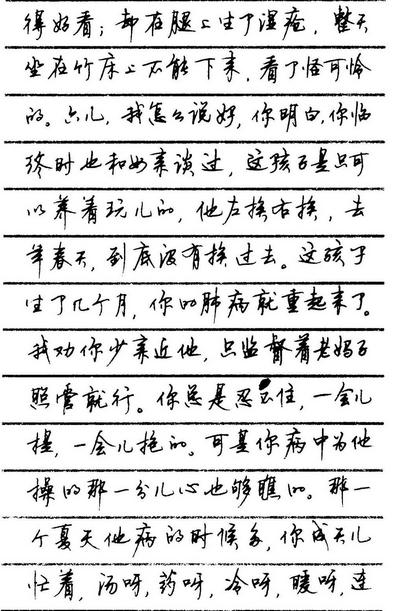 得好看；却在腿上生了湿疮，整天
坐在竹床上不能下来，看了怪可怜
的。六儿，我怎么说好，你明白，你临
终时也和母亲谈过，这孩子是只可
以养着玩儿的，他左挨右挨，去
年春天，到底没有挨过去。这孩子
生了几个月，你的肺病就重起来了。
我劝你少亲近他，只监督着老妈子
照管就行。你总是忍不住，一会儿
提，一会儿抱的。可是你病中为他
操的那一分儿心也够瞧的。那一
个夏天他病的时候多，你成天儿
忙着，汤呀，药呀，冷呀，暖呀，连